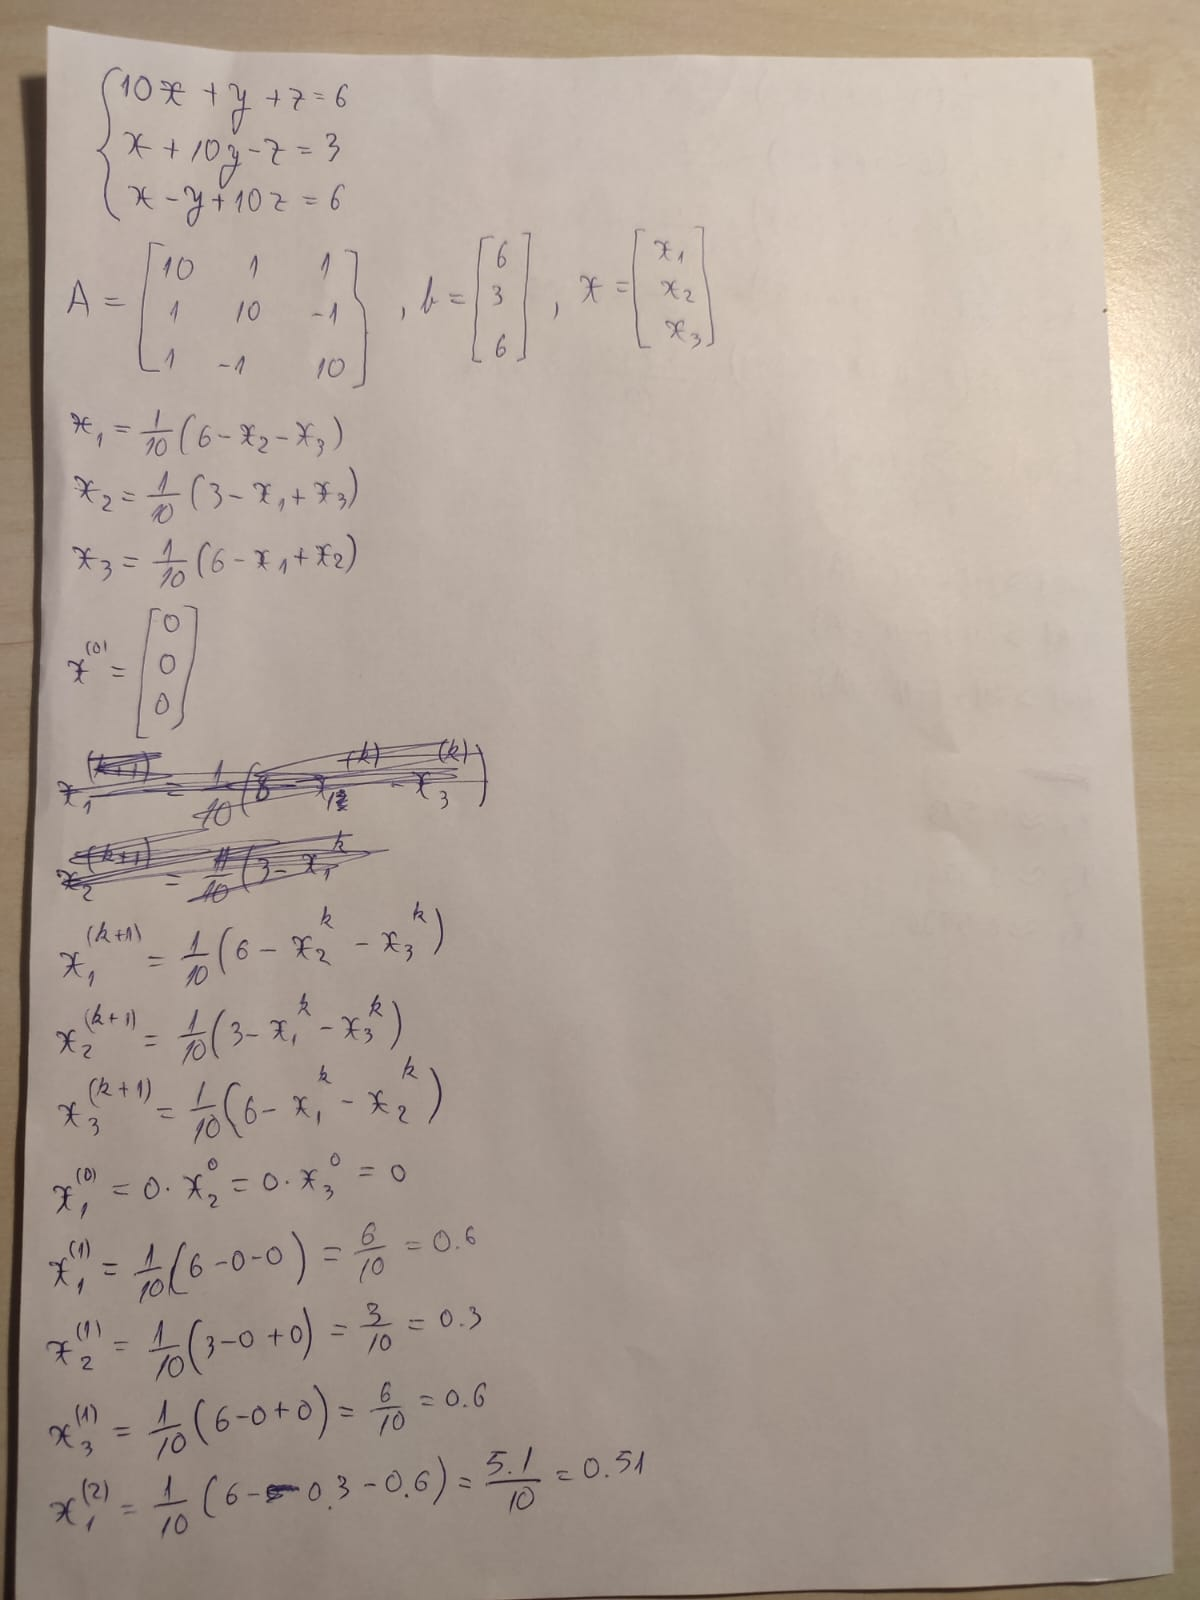 10x + y + z = 6
x + 10y - z = 3
x - y + 10z = 6
A = [10 1 1; 1 10 -1; 1 -1 10], b = [6; 3; 6], x = [x₁; x₂; x₃]
x₁ = 1/10 (6 - x₂ - x₃)
x₂ = 1/10 (3 - x₁ + x₃)
x₃ = 1/10 (6 - x₁ + x₂)
x⁽⁰⁾ = [0; 0; 0]
x₁⁽ᵏ⁺¹⁾ = 1/10 (6 - x₂ᵏ - x₃ᵏ)
x₂⁽ᵏ⁺¹⁾ = 1/10 (3 - x₁ᵏ - x₃ᵏ)
x₃⁽ᵏ⁺¹⁾ = 1/10 (6 - x₁ᵏ - x₂ᵏ)
x₁⁽⁰⁾ = 0 · x₂⁰ = 0 · x₃⁰ = 0
x₁⁽¹⁾ = 1/10 (6 - 0 - 0) = 6/10 = 0.6
x₂⁽¹⁾ = 1/10 (3 - 0 + 0) = 3/10 = 0.3
x₃⁽¹⁾ = 1/10 (6 - 0 + 0) = 6/10 = 0.6
x₁⁽²⁾ = 1/10 (6 - 0.3 - 0.6) = 5.1/10 = 0.51